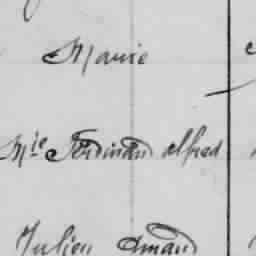 Marie
Mie Ferdinand alfred
Julien Amand